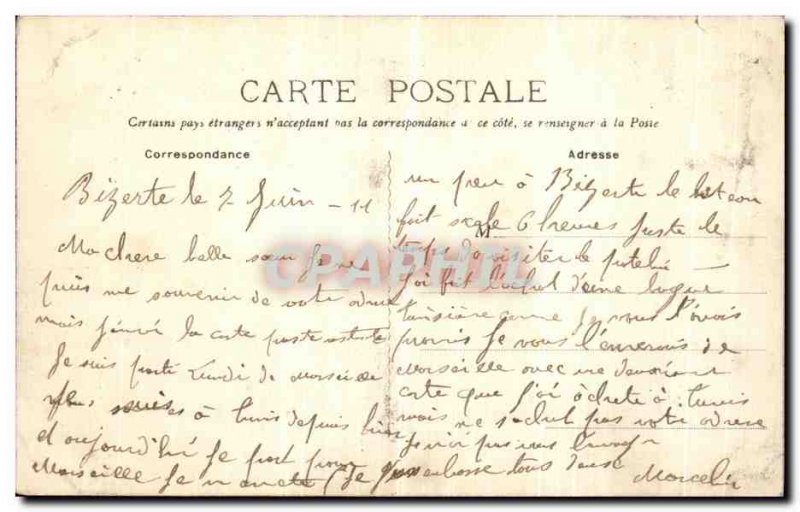 CARTE POSTALE
Certains pays étrangers n'acceptant pas la correspondance de ce côté, se renseigner à la Poste
Correspondance
Bizerte le 7 Juin - 11
Ma chere belle sœur Je ne
puis me souvenir de votre adresse
mais la carte poste
Je suis parti Lundi de Marseille
à tunis depuis hier
et aujourd'hui Je part pour
Marseille Je
Adresse
un peu à Bizerte le bateau
fait 6 heures juste le
temps de visiter le
J'ai fait l'achat d'une bague
tunisienne comme Je vous l'avais
promis Je vous l'enverais de
Marseille avec une
carte que J'ai acheté à tunis
mais ne sachat pas votre adresse
Je n'ai pas
embrasse tous deux
Marcelin
M
CPARHTL